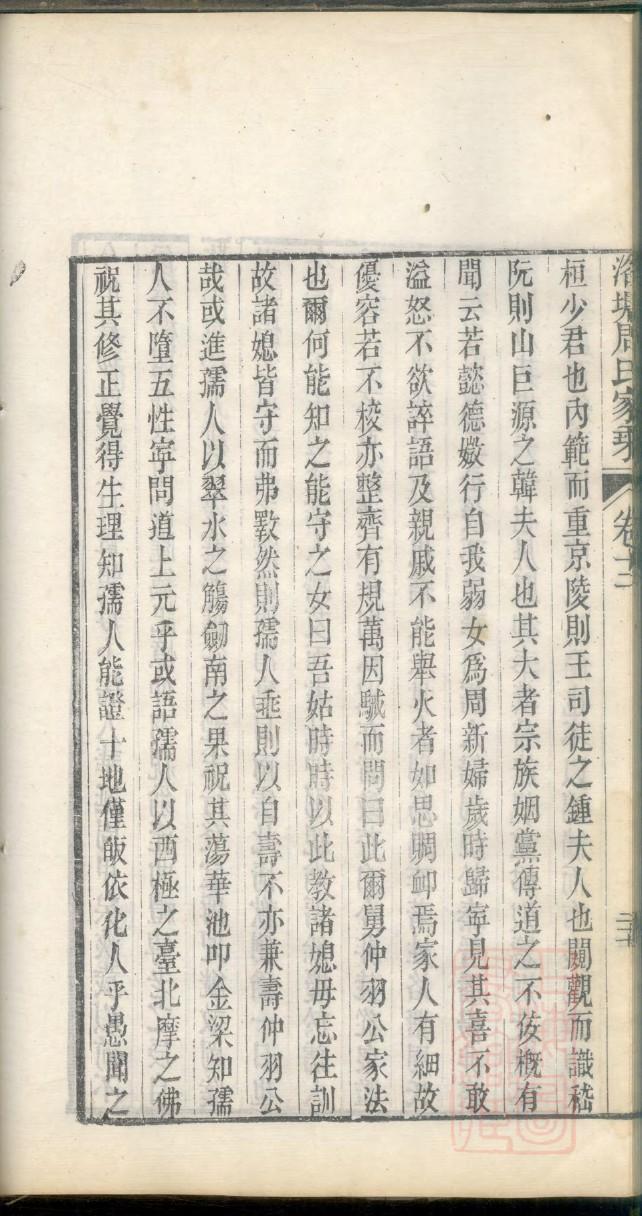 周氏家乘 卷十二
桓少君也內範而重京陵則王司徒之鍾夫人也闚觀而識嵇
阮則山巨源之韓夫人也其大者宗族姻黨傳道之不佞概有
聞云若懿德媺行自我弱女爲周新婦歲時歸寧見其喜不敢
溢怒不欲誶語及親戚不能舉火者如思賙卹焉家人有細故
優容若不校亦整齊有規萬因駴而問曰此爾舅仲羽公家法
也爾何能知之能守之女曰吾姑時時以此教諸媳毋忘往訓
故諸媳皆守而弗斁然則孺人壼則以自壽不亦兼壽仲羽公
哉或進孺人以翠水之觴劒南之果祝其蕩華池叩金梁知孺
人不墮五性寧問道上元乎或語孺人以酉極之臺北摩之佛
祝其修正覺得生理知孺人能證十地僅皈依化人乎愚聞之